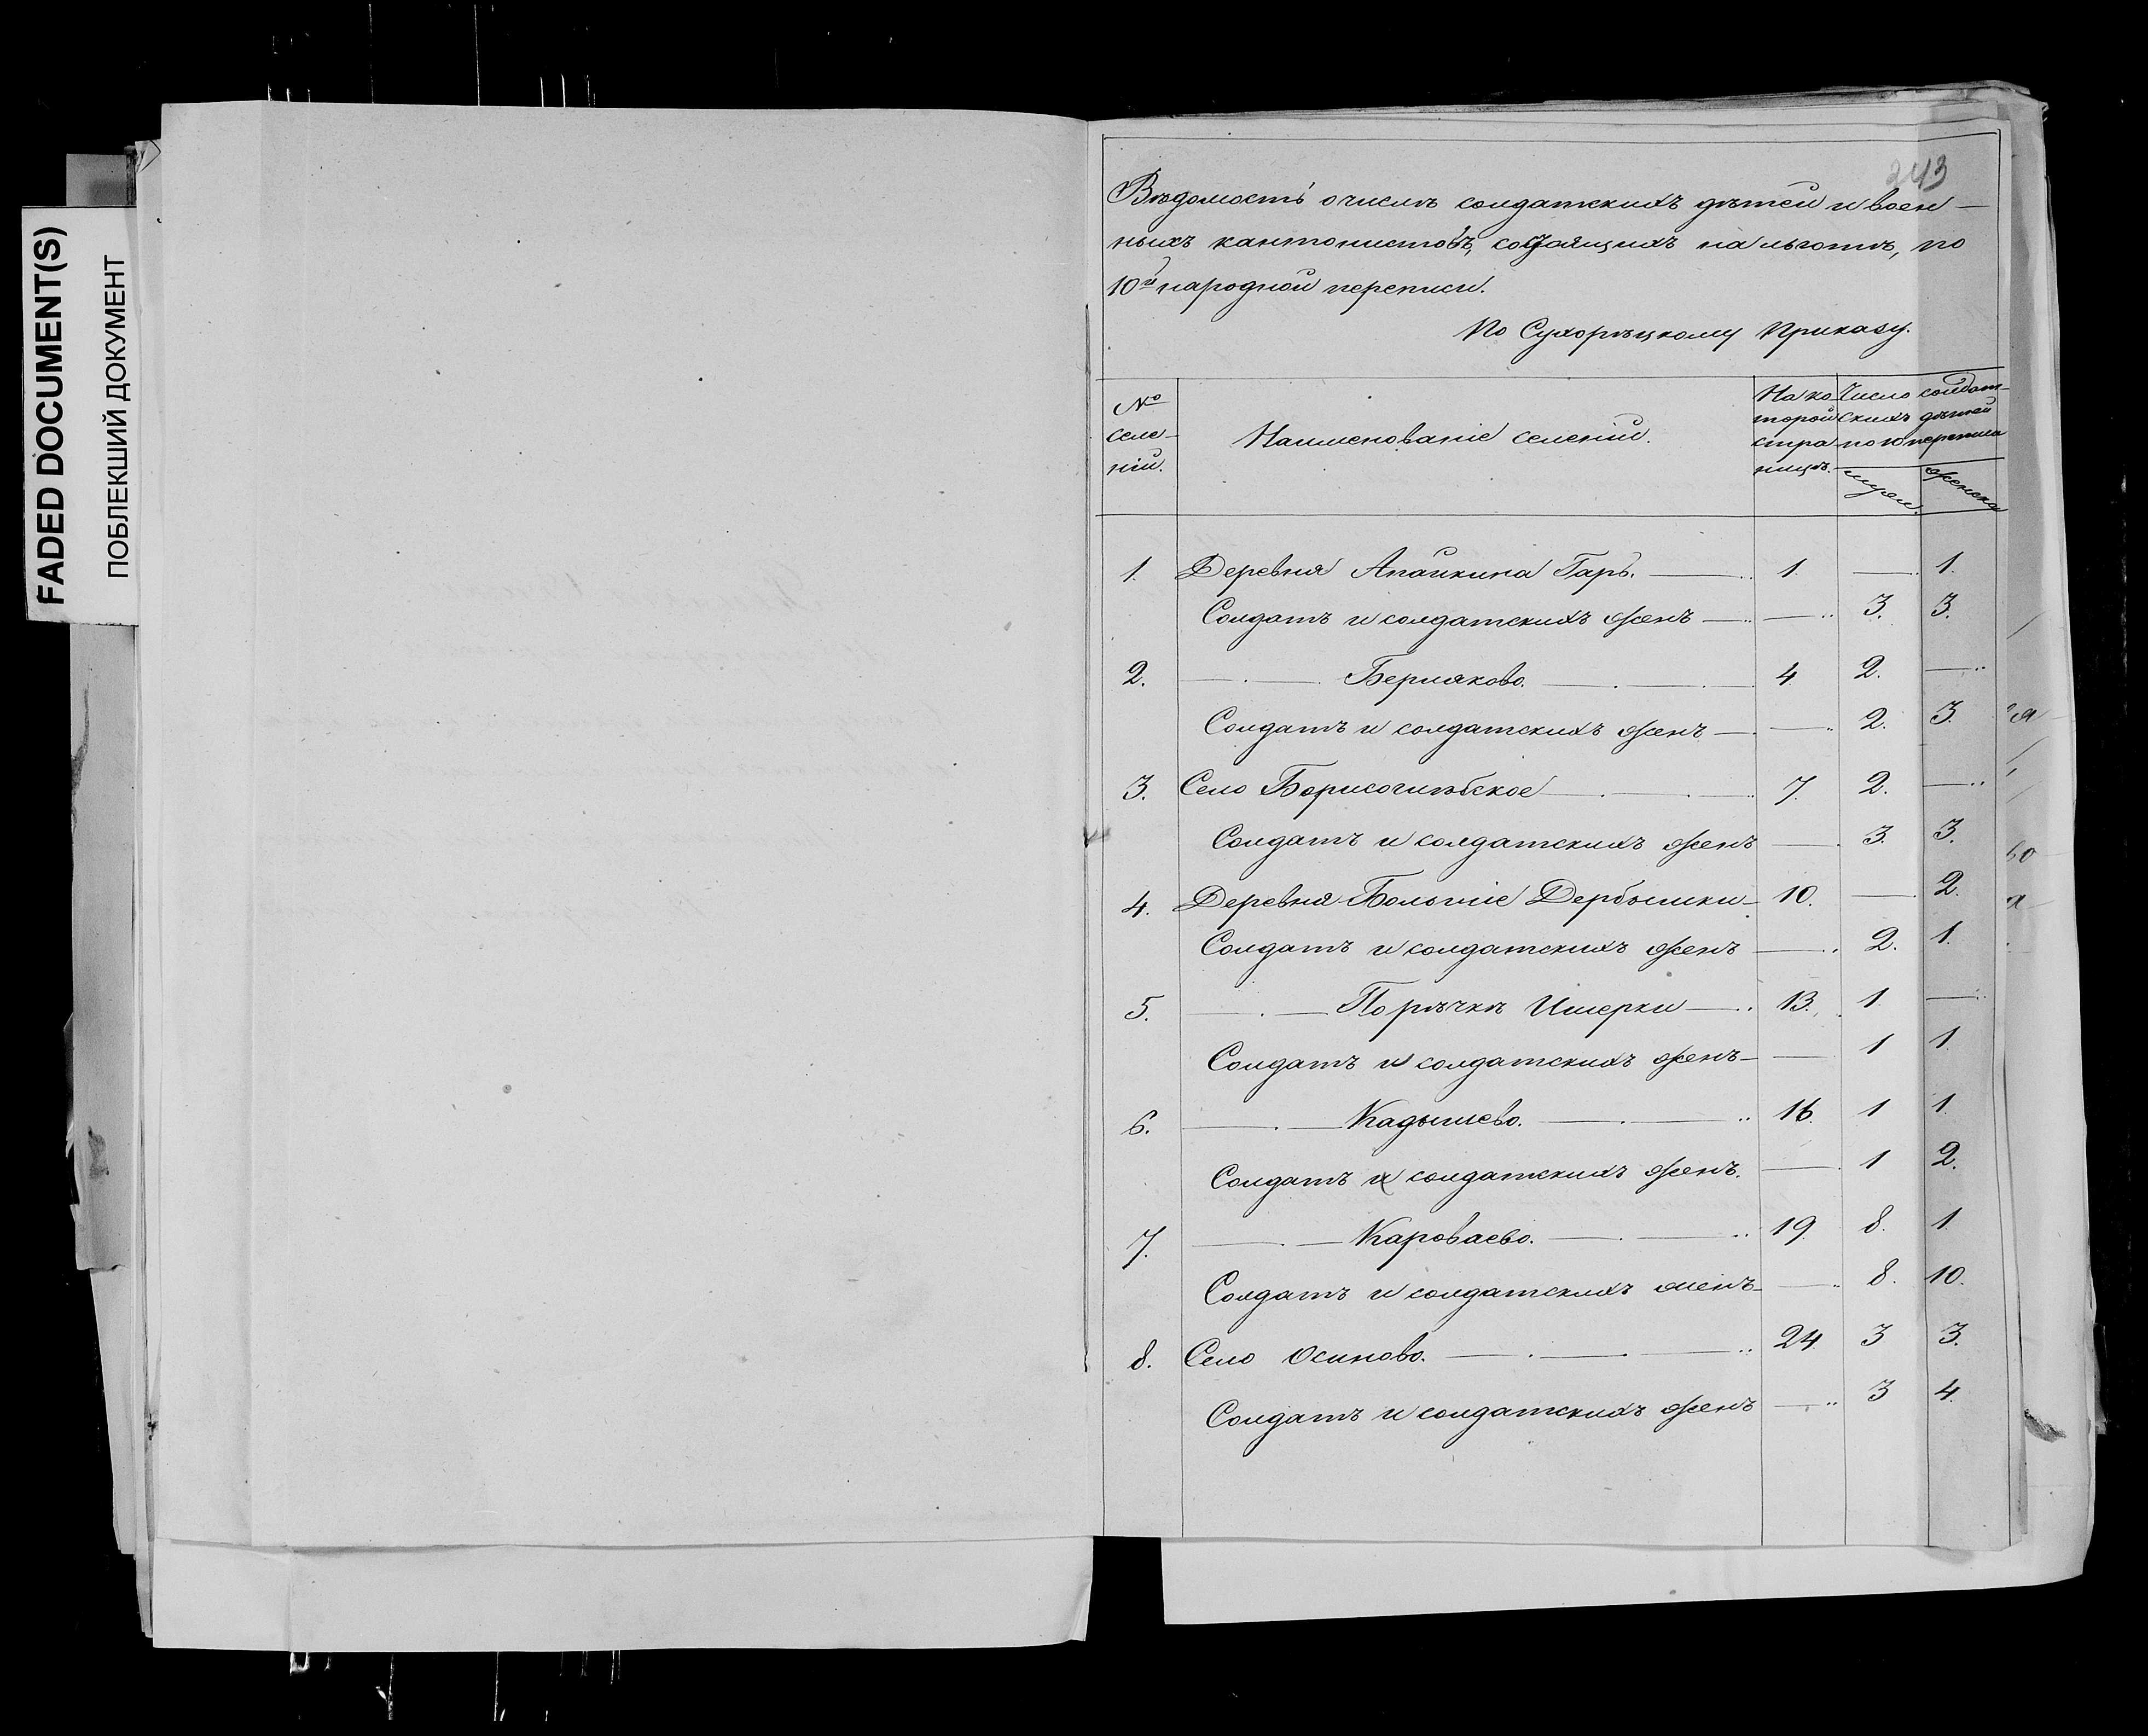 FADED DOCUMENT(S)
ПОБЛЕКШИЙ ДОКУМЕНТ
243
Вѣдомость о числѣ солдатскихъ дѣтей и воен-
ныхъ кантонистовъ, состоящихъ на льготѣ, по
10й народной переписи.
По Сухорѣцкому Приказу.
№ селе-ній. Наименованіе селеній. На ко-торой стра-ницѣ. Число солдат-скихъ дѣтей по 10 переписи
муж. женска
1. Деревня Апайкина Гарь. — 1. — 1.
Солдатъ и солдатскихъ женъ — — 3. 3.
2. — Бермяково. — 4 2. —
Солдатъ и солдатскихъ женъ — — 2. 3.
3. Село Борисоглѣбское — 7. 2. —
Солдатъ и солдатскихъ женъ — 3. 3.
4. Деревня Большіе Дербышки — 10. — 2.
Солдатъ и солдатскихъ женъ — 2. 1.
5. — Порѣчкѣ Ишерки — 13. 1 —
Солдатъ и солдатскихъ женъ — — 1 1
6. — Кадышево. — 16. 1 1.
Солдатъ и солдатскихъ женъ. — 1 2.
7. — Кароваево. — 19. 8. 1.
Солдатъ и солдатскихъ женъ — — 8. 10.
8. Село Осиново. — 24 3 3.
Солдатъ и солдатскихъ женъ — 3 4.